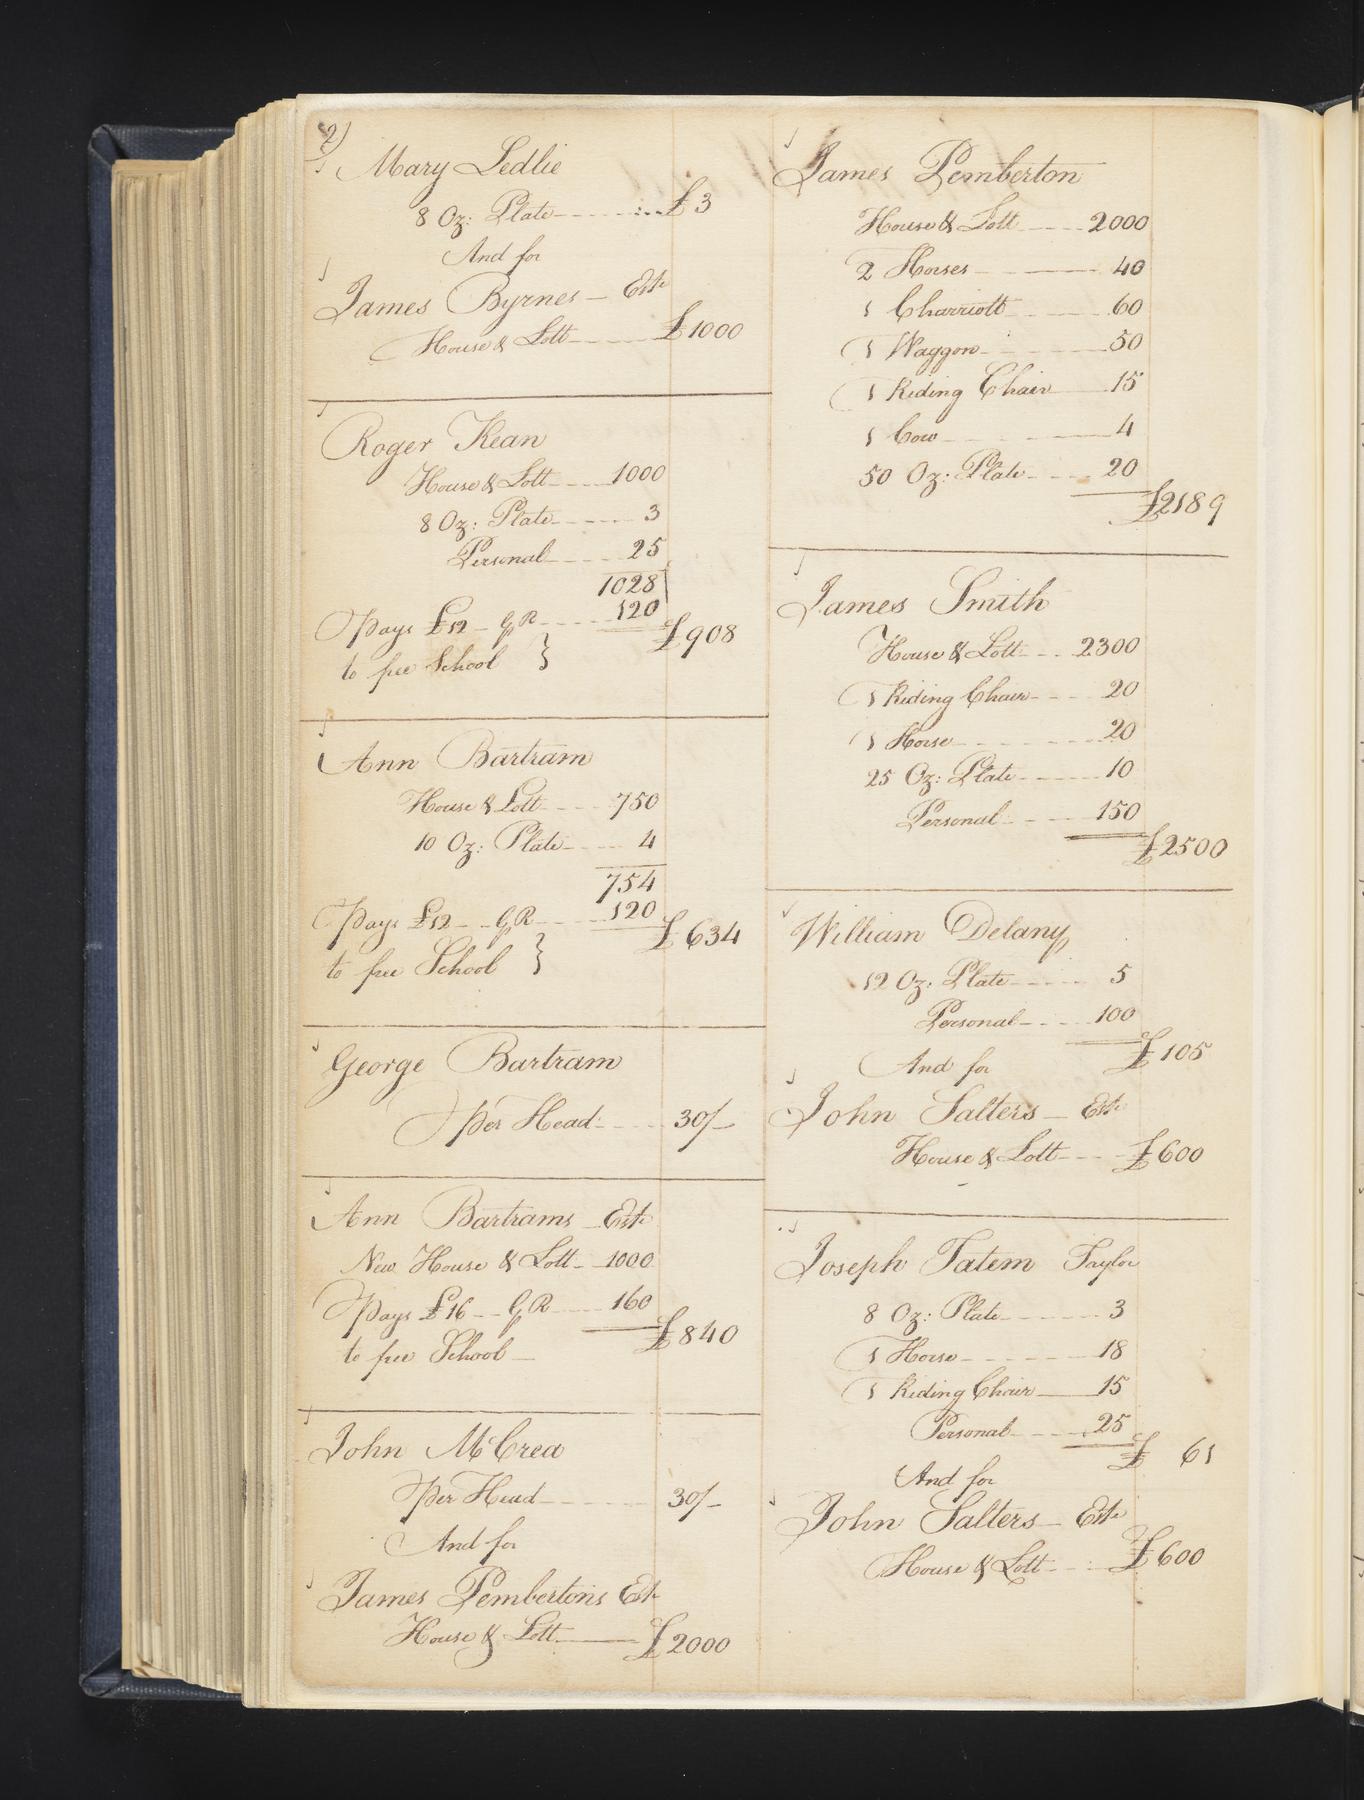 2)
Mary Ledlie
8 Oz: Plate £3
And for
James Byrnes - Este
House & Lott £1000
Roger Kean
House & Lott 1000
8 Oz: Plate 3
Personal 25
1028
Pays £12 GR 120
to free School } £908
Ann Bartram
House & Lott 750
10 Oz: Plate 4
754
Pays £12 GR 120
to free School } £634
George Bartram
per Head 30/-
Ann Bartrams Este
New House & Lott 1000
Pays £16 GR 160
to free School £840
John McCrea
Per Head 30/-
And for
James Pembertons Este
House & Lott £2000
James Pemberton
House & Lott 2000
2 Horses 40
1 Charriott 60
1 Waggon 50
1 Riding Chair 15
1 Cow 4
50 Oz: Plate 20
£2189
James Smith
House & Lott 2300
1 Riding Chair 20
1 Horse 20
25 Oz: Plate 10
Personal 150
£2500
William Delany
12 Oz: Plate 5
Personal 100
£105
And for
John Salters - Este
House & Lott £600
Joseph Tatem Taylor
8 Oz: Plate 3
1 Horse 18
1 Riding Chair 15
Personal 25
£ 61
And for
John Salters - Este
House & Lott £600